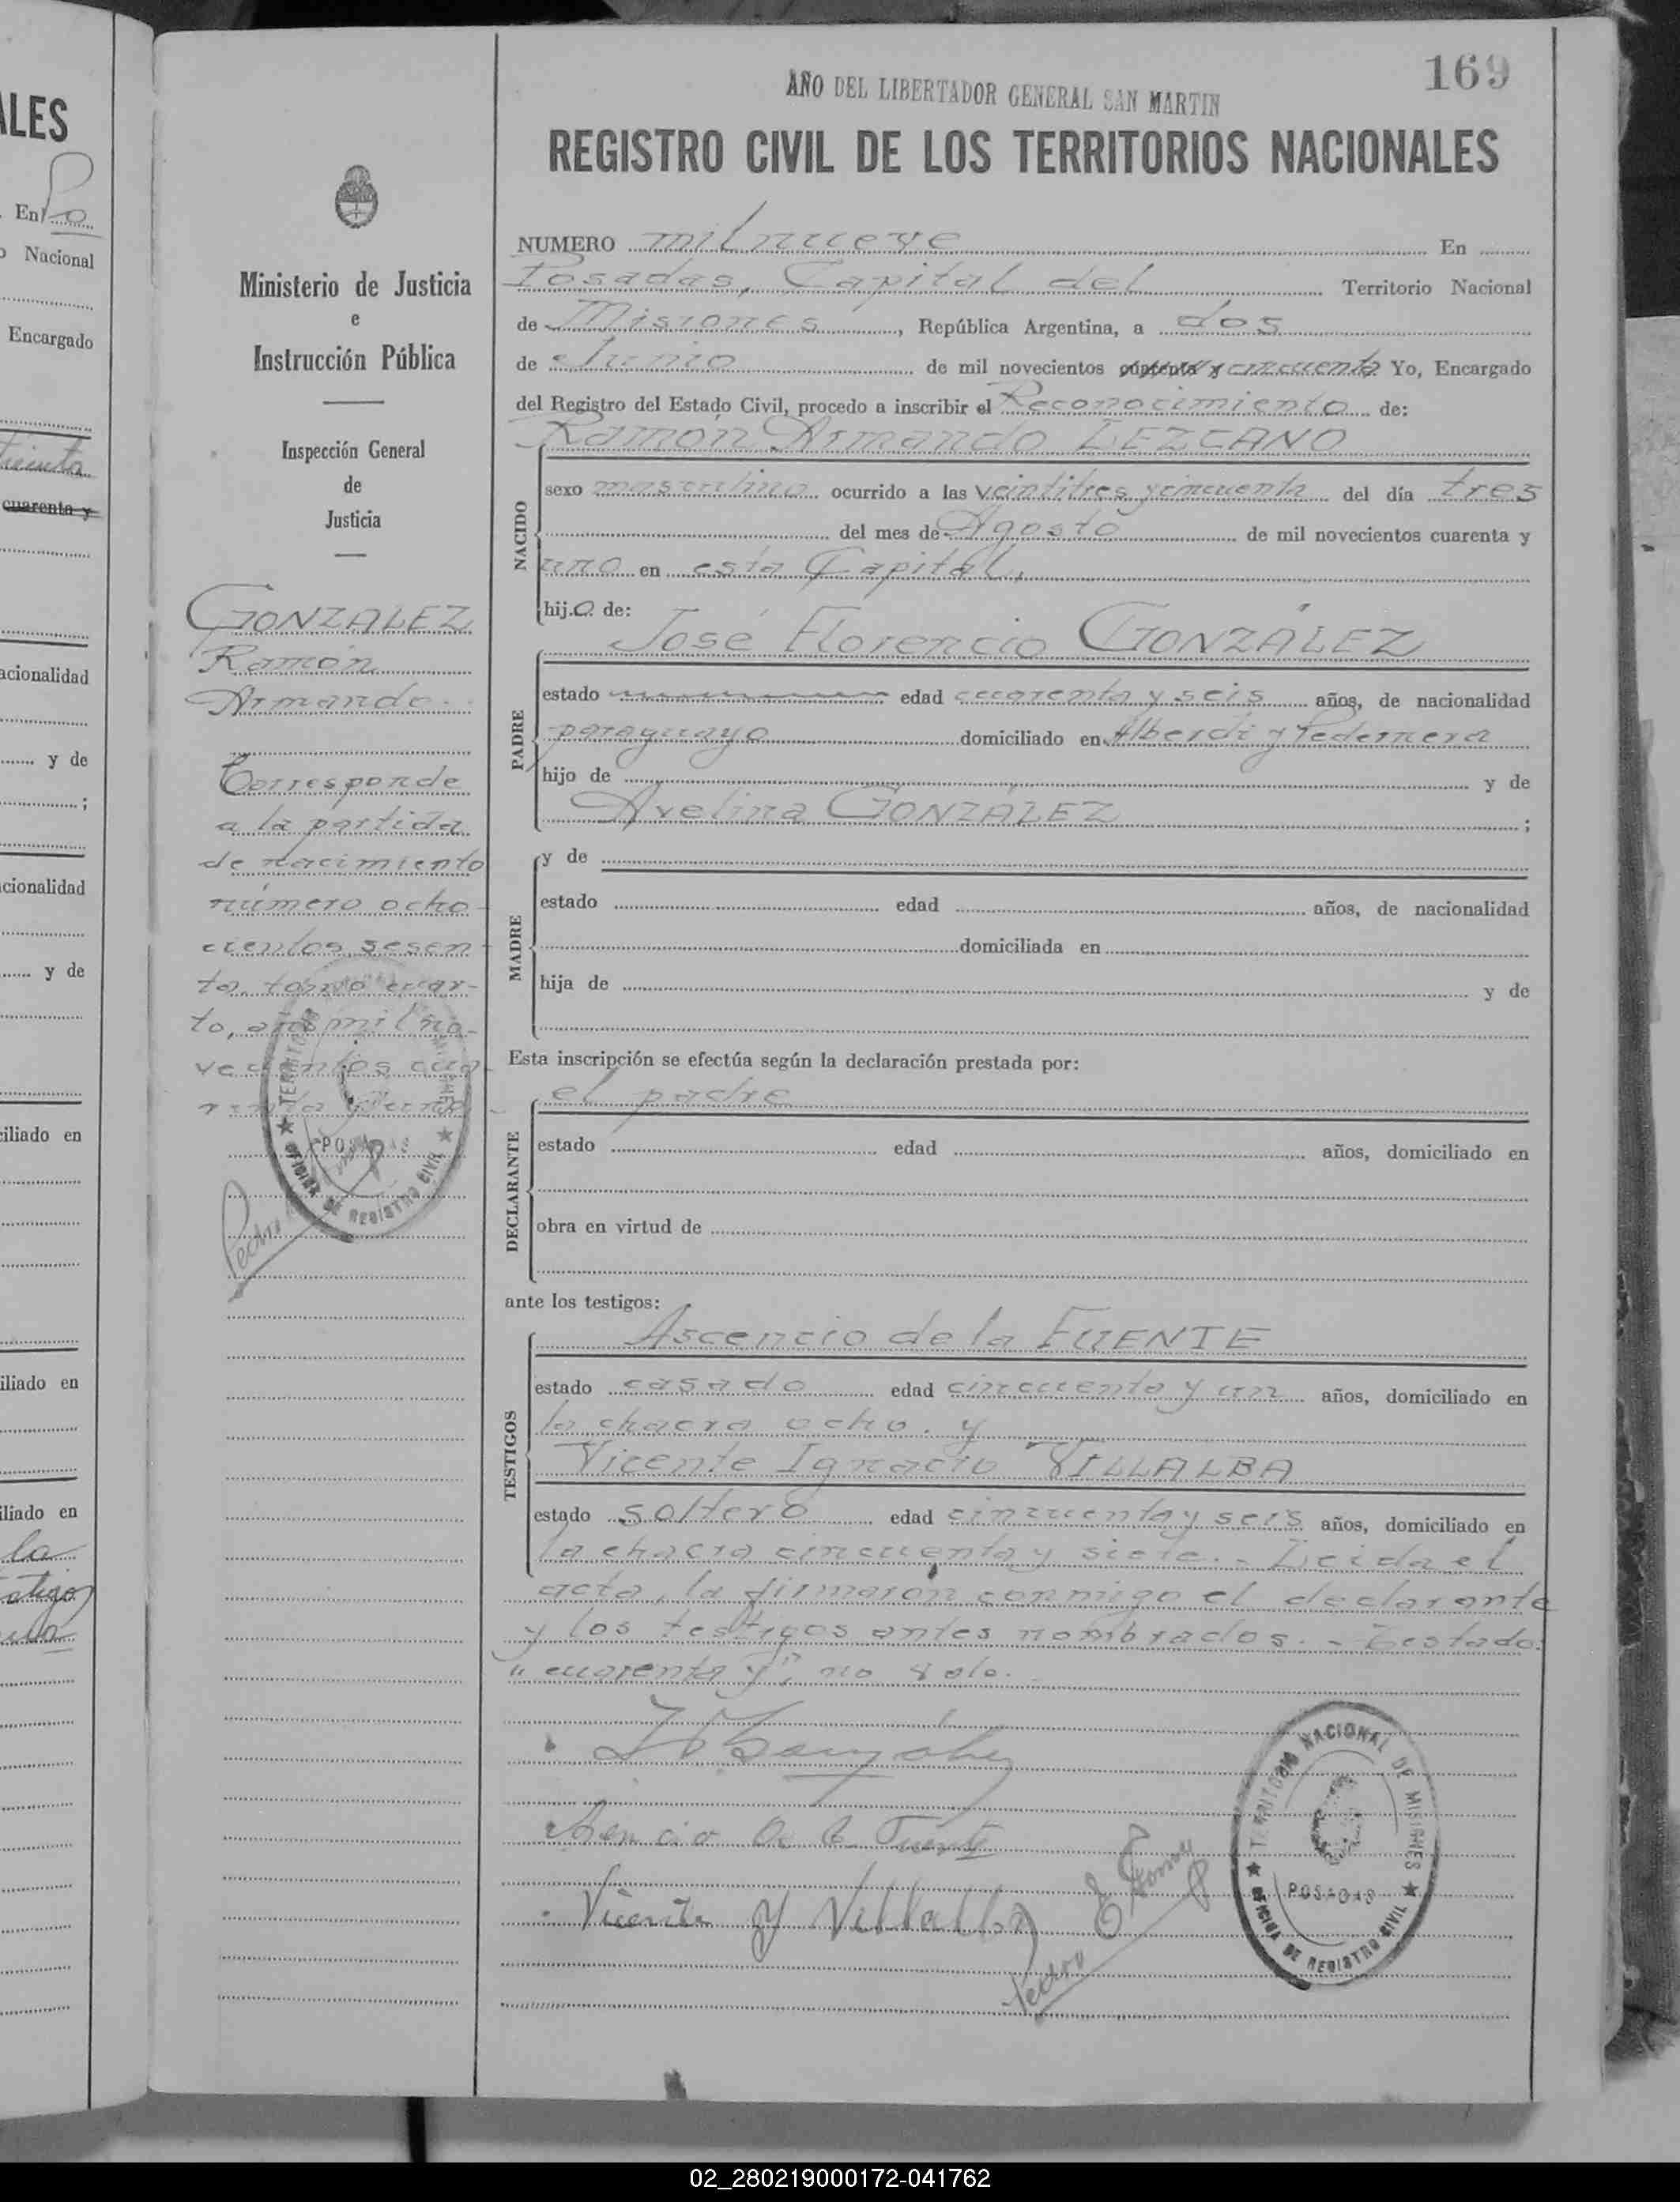 ALES
En Po
o Nacional
Encargado
cuarenta y
acionalidad
y de
;
cionalidad
y de
ciliado en
iliado en
iliado en
la
169
AÑO DEL LIBERTADOR GENERAL SAN MARTIN
REGISTRO CIVIL DE LOS TERRITORIOS NACIONALES
Ministerio de Justicia
e
Instrucción Pública
Inspección General
de
Justicia
GONZALEZ
Ramón
Armando.
Corresponde
a la partida
de nacimiento
número ocho-
cientos sesen-
ta, tomo cuar-
to, año mil no-
vecientos cua-
renta y uno
TERRITORIO
POSADAS
OFICINA DE REGISTRO CIVIL
Pedro
NUMERO mil nueve En
Posadas, Capital del Territorio Nacional
de Misiones, República Argentina, a dos
de Junio de mil novecientos cuarenta y cincuenta Yo, Encargado
del Registro del Estado Civil, procedo a inscribir el Reconocimiento de:
Ramón Armando LEZCANO
NACIDO
sexo masculino ocurrido a las veintitres y cincuenta del día tres
del mes de Agosto de mil novecientos cuarenta y
uno en esta Capital,
hijo de:
José Florencio GONZÁLEZ
PADRE
estado edad cuarenta y seis años, de nacionalidad
paraguayo domiciliado en Alberdi y Pedernera
hijo de y de
Avelina GONZÁLEZ ;
MADRE
y de
estado edad años, de nacionalidad
domiciliada en
hija de y de
Esta inscripción se efectúa según la declaración prestada por:
el padre
DECLARANTE
estado edad años, domiciliado en
obra en virtud de
ante los testigos:
TESTIGOS
Ascencio de la FUENTE
estado casado edad cincuenta y un años, domiciliado en
la chacra ocho. y
Vicente Ignacio VILLALBA
estado soltero edad cincuenta y seis años, domiciliado en
la chacra cincuenta y siete.- Leida el
acta, la firmaron conmigo el declarante
y los testigos antes nombrados.- Testado:
"cuarenta y"; no vale.-
Gonzalez
Asencio de la Fuente
Vicente Y Villalba
Pedro
TERRITORIO NACIONAL DE MISIONES
POSADAS
OFICINA DE REGISTRO CIVIL
02_280219000172-041762